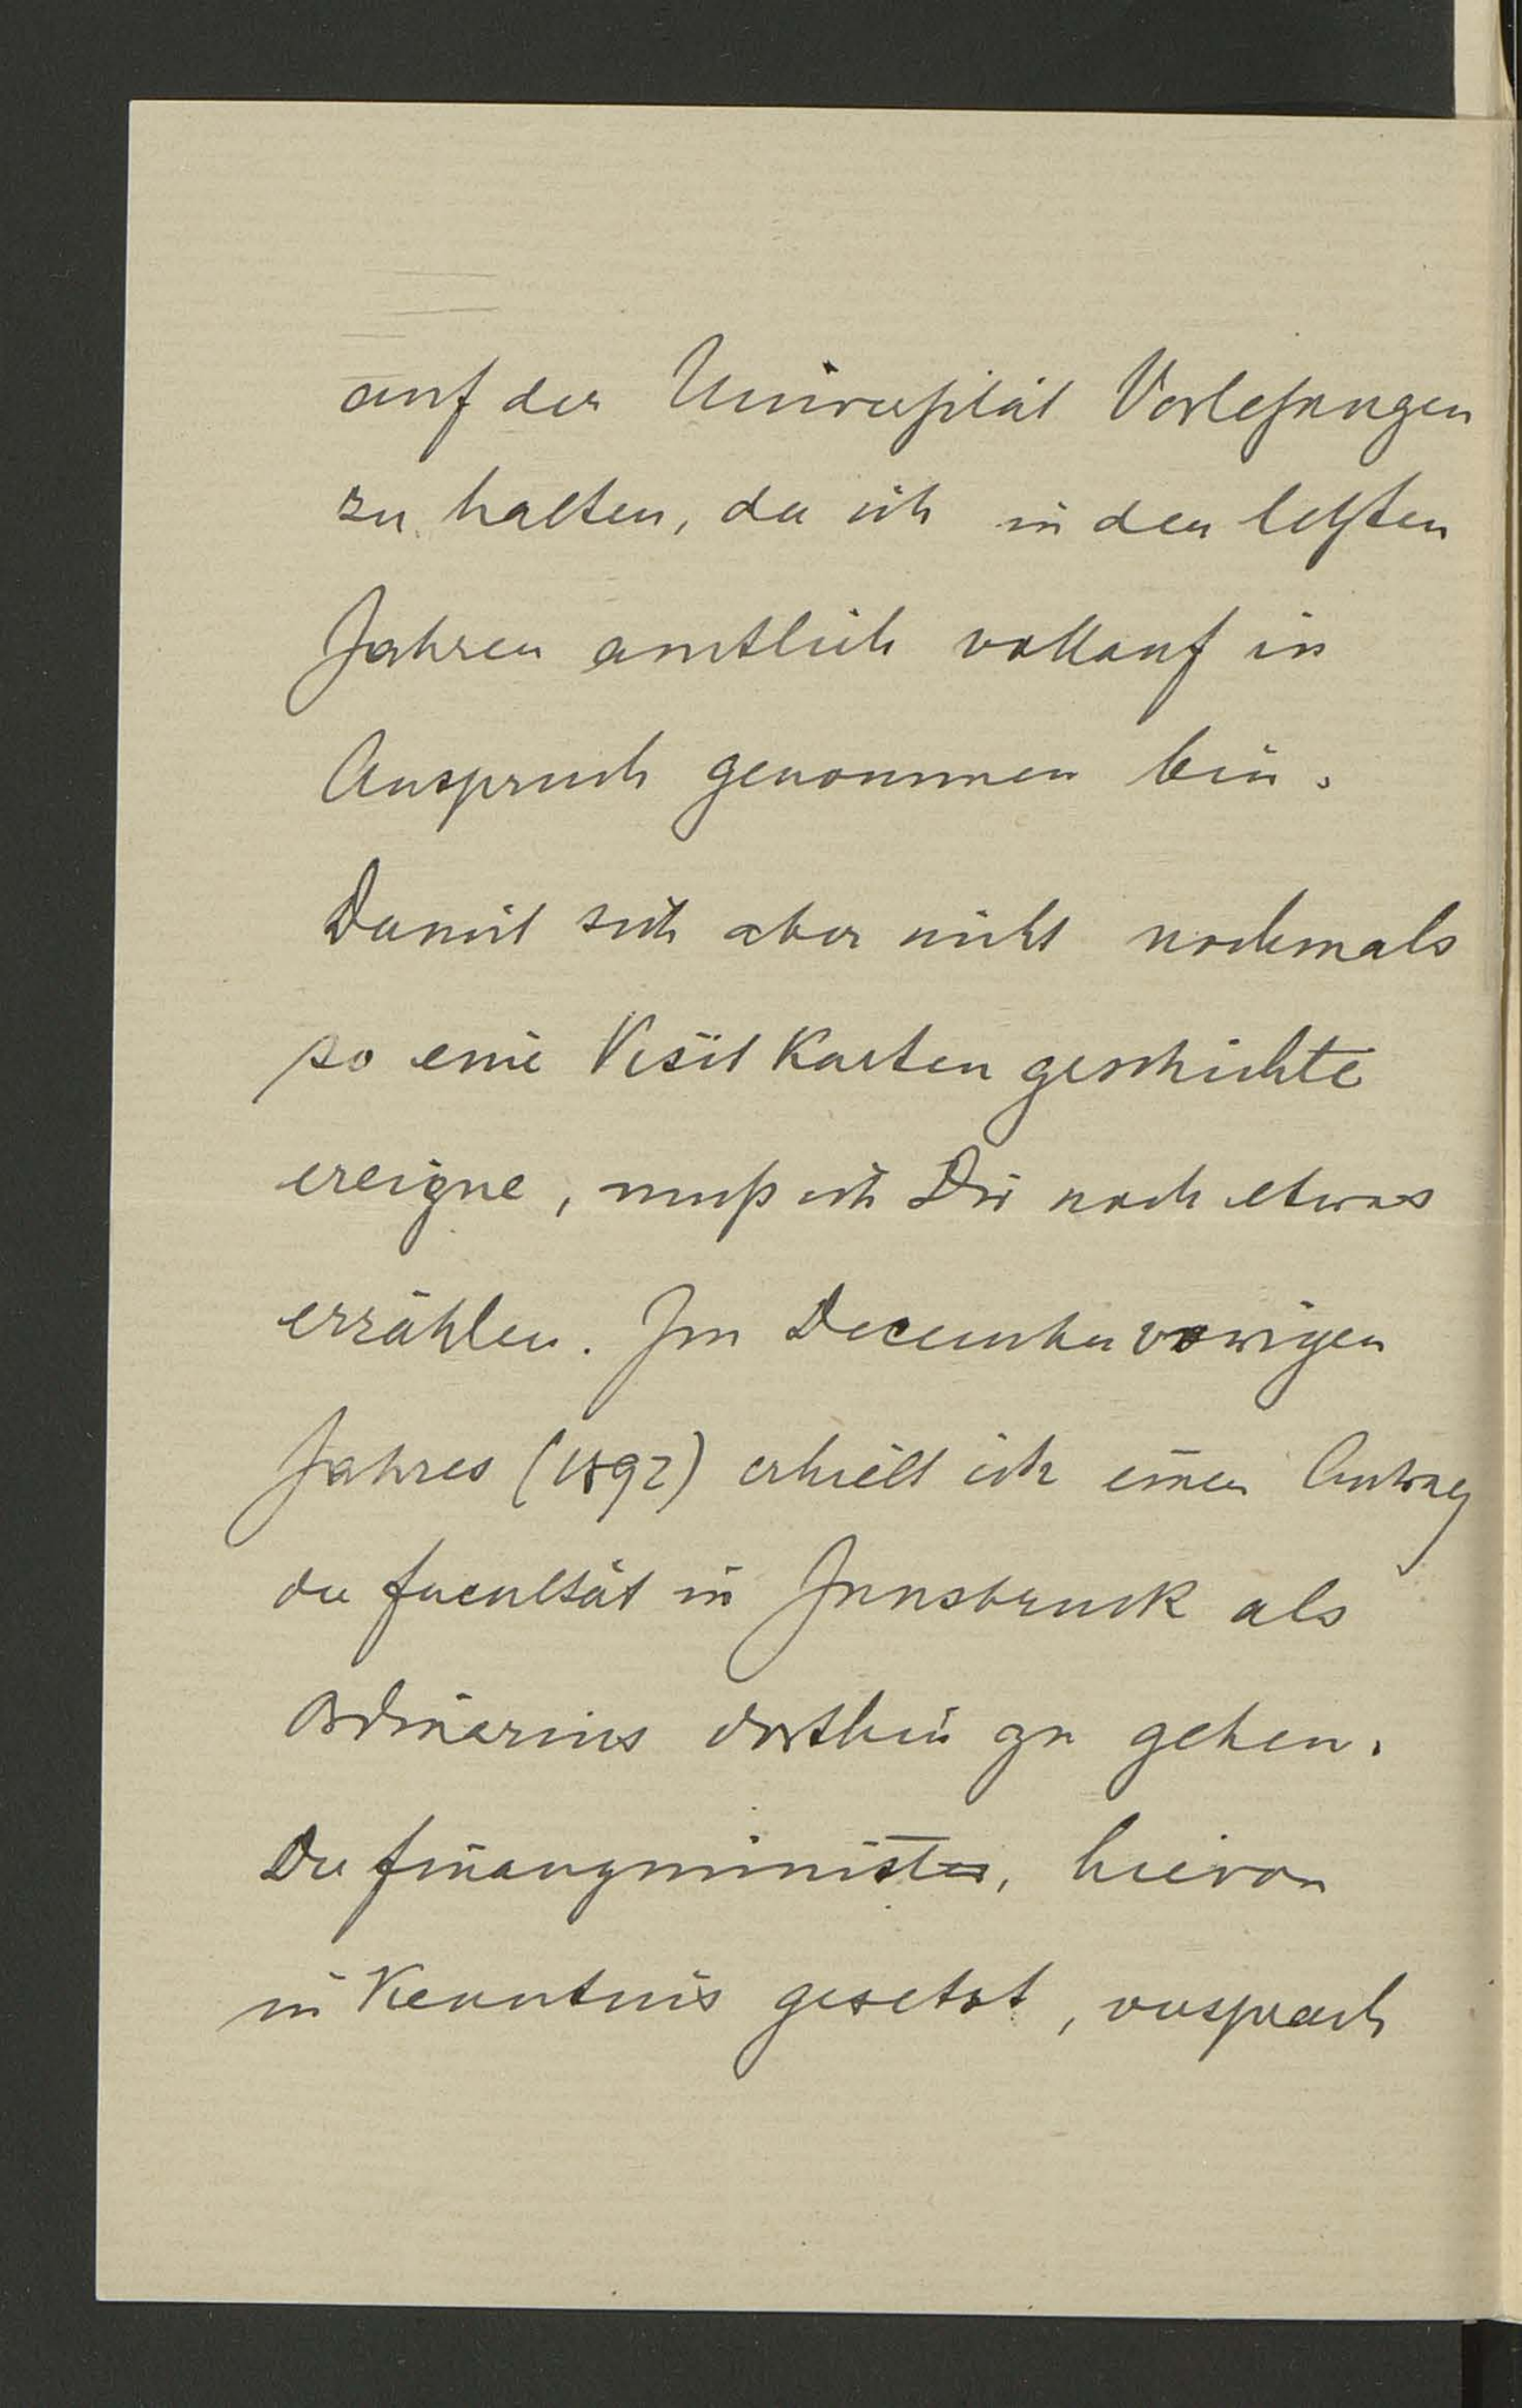 auf der Universität Vorlesungen
zu halten, da ich in den letzten
Jahren amtlich vollauf in
Anspruch genommen bin.
Damit sich aber nicht nochmals
so eine Visitkartengeschichte
ereigne, muß ich Dir noch etwas
erzählen. Im December vorigen
Jahres (1892) erhielt ich einen Antrag
der Facultät in Innsbruck als
Ordinarius dorthin zu gehen.
Der Finanzminister, hievon
in Kenntnis gesetzt, versprach